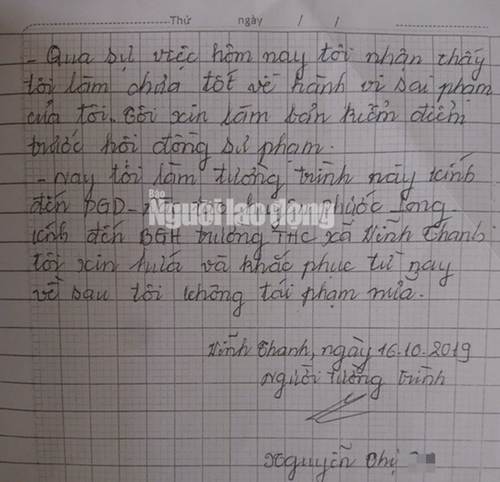 Thứ ngày / /
- Qua sự việc hôm nay tôi nhận thấy
tôi làm chưa tốt về hành vi sai phạm
của tôi. Tôi xin làm bản kiểm điểm
trước hội đồng sư phạm.
- Nay tôi làm tường trình này kính
đến PGD- Phước Long
Báo
Người lao động
kính đến BGH trường THC xã Vĩnh Thanh
tôi xin hứa và khắc phục từ nay
về sau tôi không tái phạm nữa.
Vĩnh Thanh, ngày 16.10.2019
Người tường trình
Nguyễn Thị